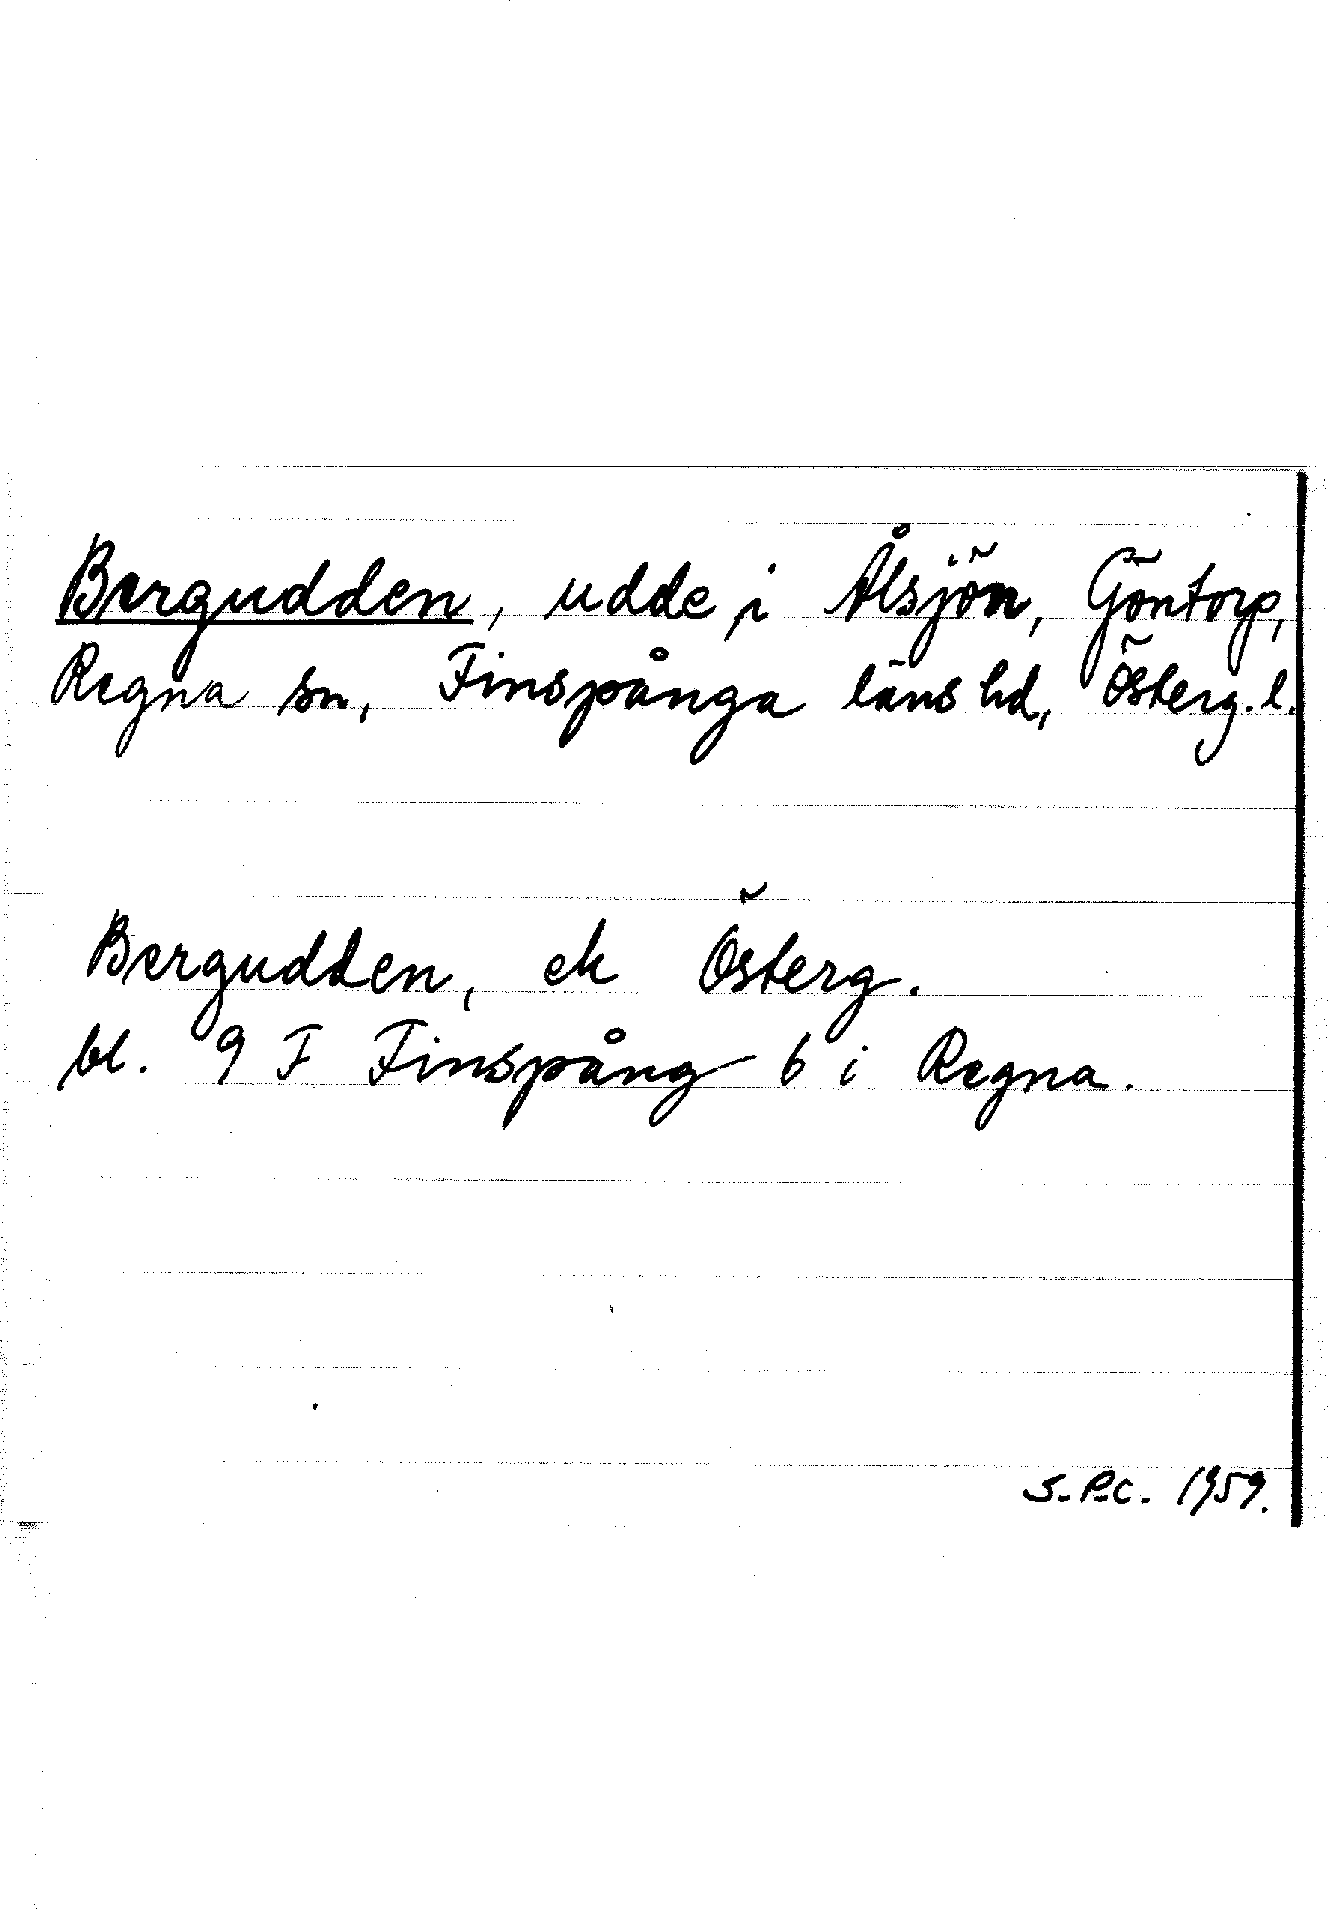 Bergudden, udde i Ålsjön, Göntorp,
Regna sn, Finspånga läns hd, Österg. l.
Bergudden, ek Österg.
bl. 9 F Finspång 6 i Regna.
S.P-C. 1959.